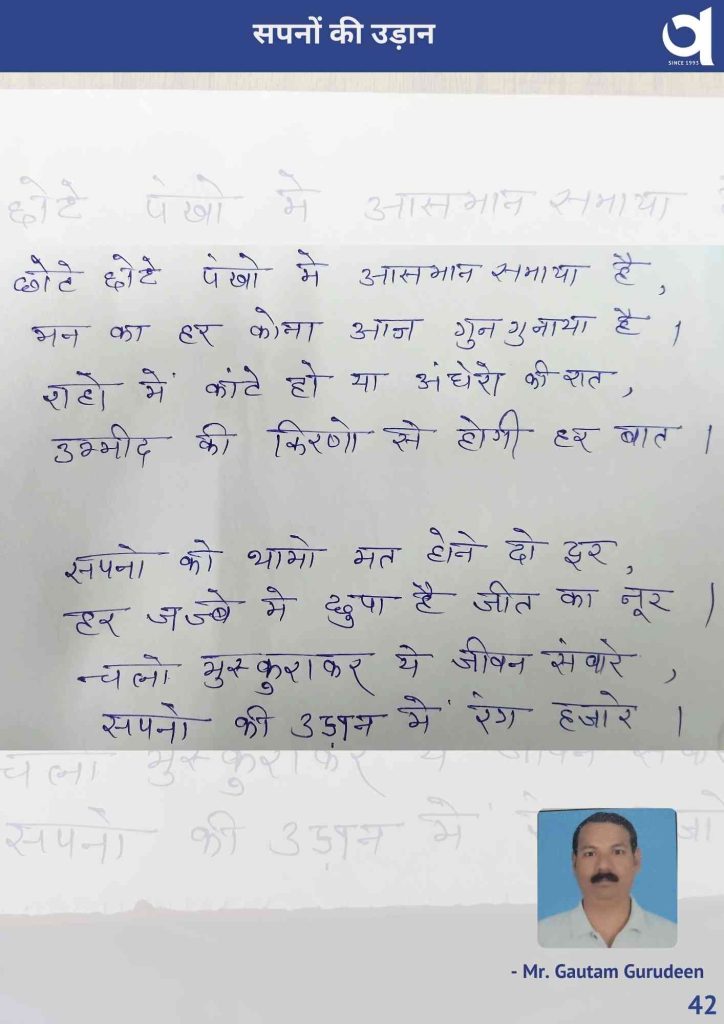 सपनों की उड़ान
SINCE 1993
छोटे पंखो मे आसमान समाया
छोटे छोटे पंखो मे आसमान समाया है,
मन का हर कोना आज गुनगुनाया है।
राहो में कांटे हो या अंधेरो की रात,
उम्मीद की किरणो से होगी हर बात।
सपनो को थामो मत होने दो दूर,
हर जज्बे मे छुपा है जीत का नूर।
चलो मुस्कुराकर ये जीवन संवारे,
सपनो की उड़ान में रंग हजारे।
चलो मुस्कुराकर ये जीवन
सपनो की उड़ान में
- Mr. Gautam Gurudeen
42